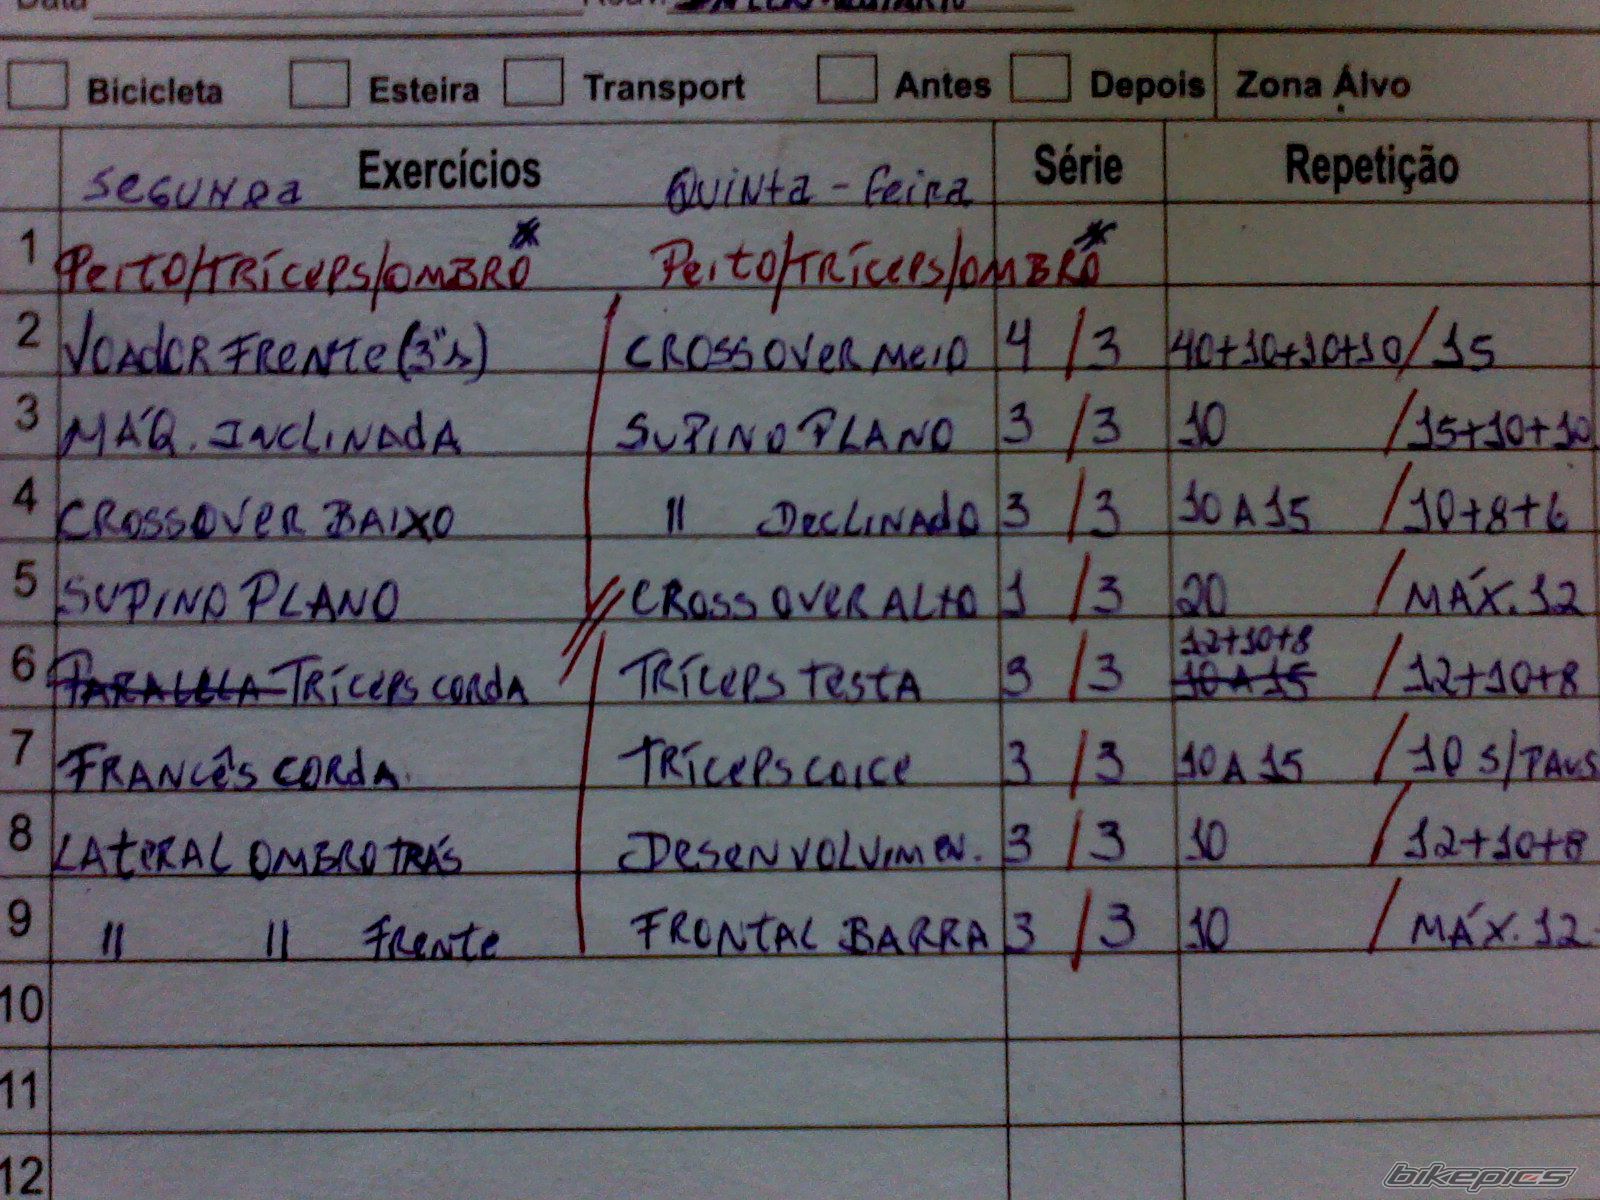 Data
Bicicleta Esteira Transport Antes Depois Zona Álvo
Segunda Exercícios Quinta-feira Série Repetição
1 Peito/Tríceps/Ombro* Peito/Tríceps/Ombro*
2 Voador Frente (3"s) Crossover Meio 4 / 3 40+10+10+10 / 15
3 Máq. Inclinada Supino Plano 3 / 3 10 / 15+10+10
4 Crossover Baixo " Declinado 3 / 3 10 A 15 / 10+8+6
5 Supino Plano Crossover Alto 1 / 3 20 / Máx. 12
12+10+8
6 Paralela Tríceps Corda Tríceps Testa 3 / 3 10 A 15 / 12+10+8
7 Francês Corda. Tríceps Coice 3 / 3 10 A 15 / 10 s/paus
8 Lateral Ombro Trás Desenvolvimen. 3 / 3 10 / 12+10+8
9 " " Frente Frontal Barra 3 / 3 10 / Máx. 12
10
11
12
bikepics